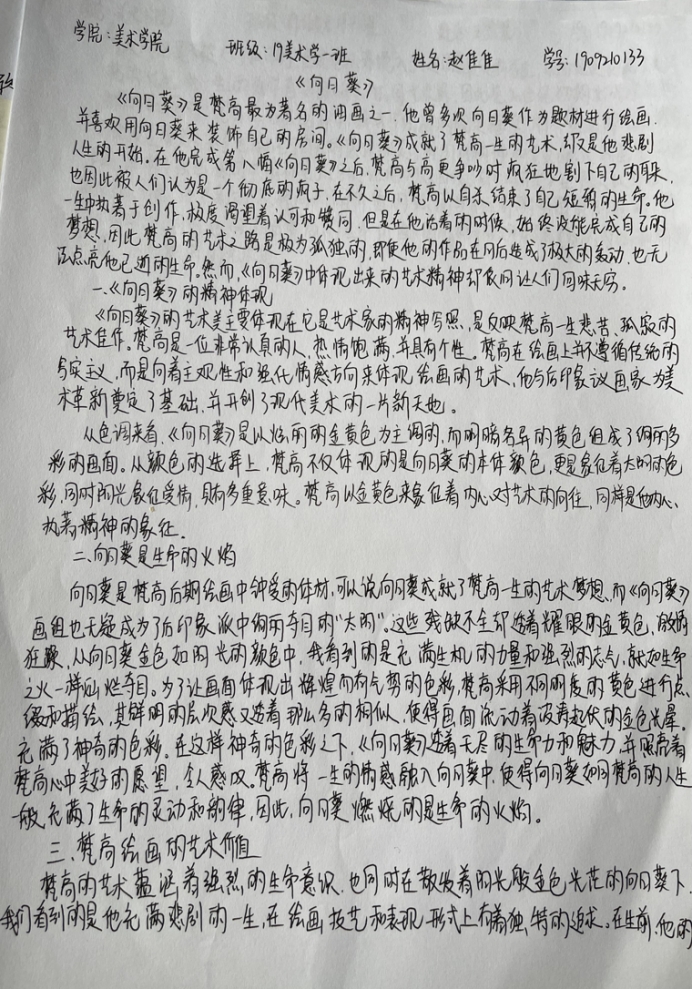 学院:美术学院 班级:19美术学一班 姓名:赵佳佳 学号:1909210133
《向日葵》
《向日葵》是梵高最为著名的油画之一,他曾多次向日葵作为题材进行绘画.
并喜欢用向日葵来装饰自己的房间。《向日葵》成就了梵高一生的艺术,却又是他悲剧
人生的开始。在他完成第八幅《向日葵》之后,梵高与高更争吵时疯狂地割下自己的耳朵,
也因此被人们认为是一个彻底的疯子,在不久之后,梵高以自杀结束了自己短暂的生命。他
一生中执着于创作,极度渴望着认可和赞同,但是在他活着的时候,始终没能完成自己的
梦想,因此梵高的艺术之路是极为孤独的,即使他的作品在日后造成了极大的轰动,也无
法点亮他已逝的生命。然而,《向日葵》中体现出来的艺术精神却依旧让人们回味无穷。
一、《向日葵》的精神体现
《向日葵》的艺术美主要体现在它是艺术家的精神写照,是反映梵高一生悲苦、孤寂的
艺术佳作。梵高是一位非常认真的人,热情饱满,并具有个性。梵高在绘画上并不遵循传统的
写实主义,而是向着主观性和强化情感方向来体现绘画的艺术,他与后印象议画家为美
术革新奠定了基础,并开创了现代美术的一片新天地。
从色调来看,《向日葵》是以灿烂的金黄色为主调的,而明暗各异的黄色组成了绚丽多
彩的画面。从颜色的选择上,梵高不仅体现的是向日葵的本体颜色,更是象征着太阳的色
彩,同时阳光象征爱情,具有多重意味。梵高以金黄色来象征着内心对艺术的向往,同样是他内心、
执著精神的象征.
二、向日葵是生命的火焰
向日葵是梵高后期绘画中钟爱的体材,可以说向日葵成就了梵高一生的艺术梦想,而《向日葵》
画组也无疑成为了后印象派中绚丽夺目的“太阳”。这些残缺不全却透着耀眼的金黄色,激情
狂飙,从向日葵金色如阳光的颜色中,我看到的是充满生机的力量和强烈的志气,就如生命
之火一样灿烂夺目。为了让画面体现出辉煌而有气势的色彩,梵高采用不同明度的黄色进行点
缀和描绘,其鲜明的层次感又透着那么多的相似,使得画面流动着波涛起伏的金色光晕.
充满了神奇的色彩。在这样神奇的色彩之下,《向日葵》透着无尽的生命力和魅力,并照亮着
梵高心中美好的愿望,令人感叹。梵高将一生的情感融入向日葵中,使得向日葵如同梵高的人生
一般充满了生命的灵动和韵律,因此,向日葵燃烧的是生命的火焰。
三、梵高绘画的艺术价值
梵高的艺术蕴涵着强烈的生命意识,也同时在散发着阳光般金色光茫的向日葵下.
我们看到的是他充满悲剧的一生,在绘画技艺和表现形式上有着独特的追求。在生前,他的